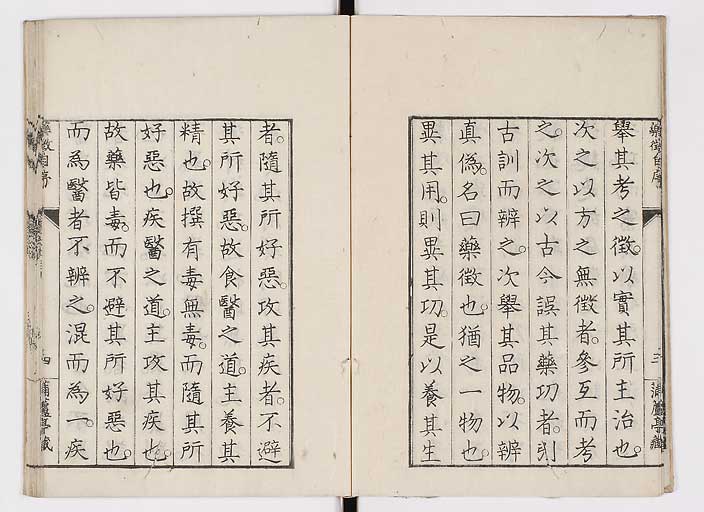 藥徵自序
舉其考之徵。以實其所主治也。
次之以方之無徵者。參互而考
之。次之以古今誤其藥功者。引
古訓而辨之。次舉其品物。以辨
真偽。名曰藥徵也。猶之一物也
異其用。則異其功。是以養其生
三
蒲蘆亭藏
者。隨其所好惡。攻其疾者。不避
其所好惡。故食醫之道。主養其
精也。故撰有毒無毒。而隨其所
好惡也。疾醫之道。主攻其疾也。
故藥皆毒。而不避其所好惡也。
而為醫者不辨之。混而為一。疾
藥徵自序
四
蒲蘆亭藏